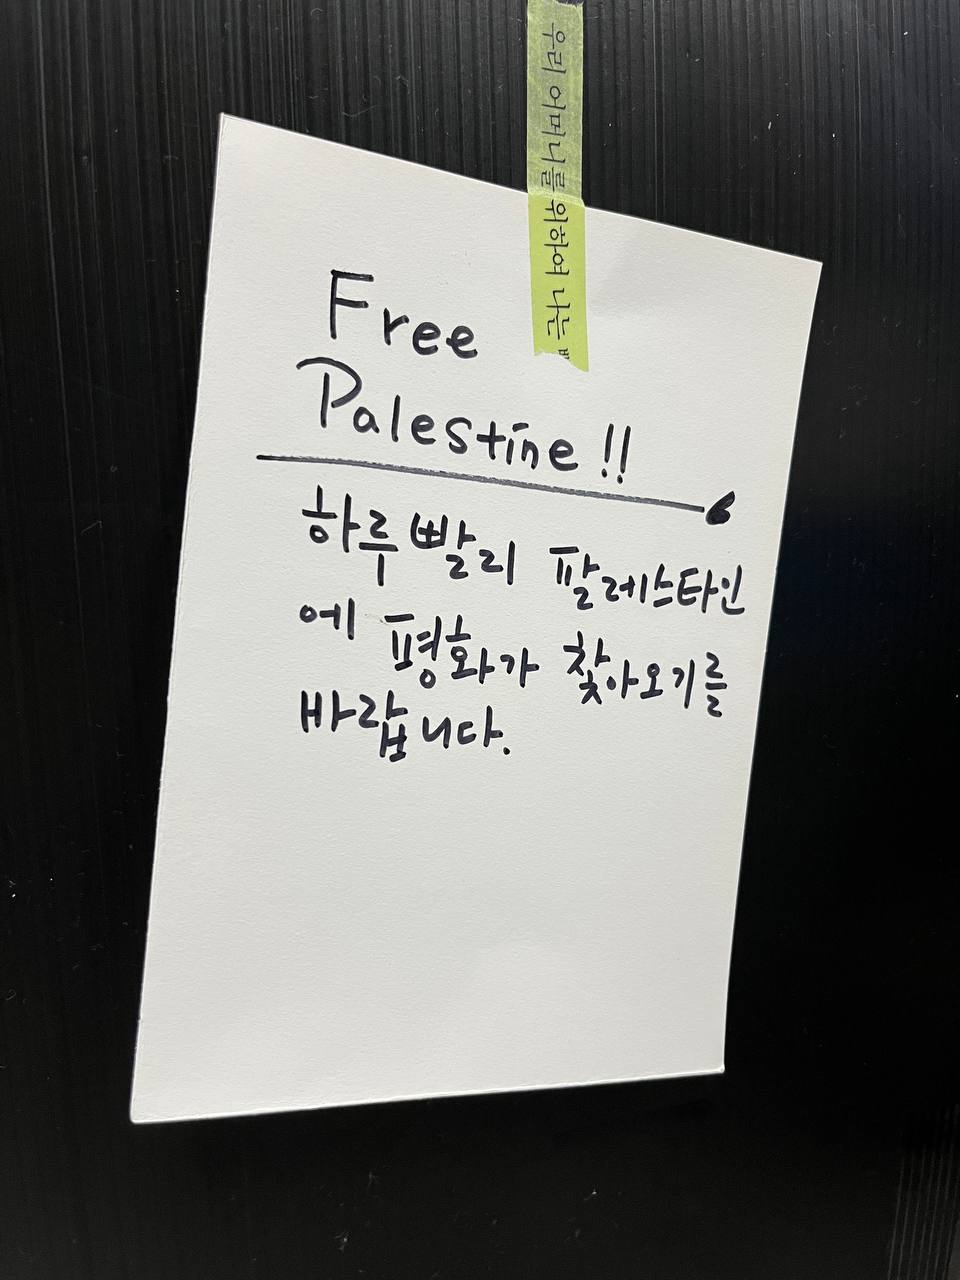 우리 어머니를위하여 나는
Free
Palestine!!
하루빨리 팔레스타인
에 평화가 찾아오기를
바랍니다.